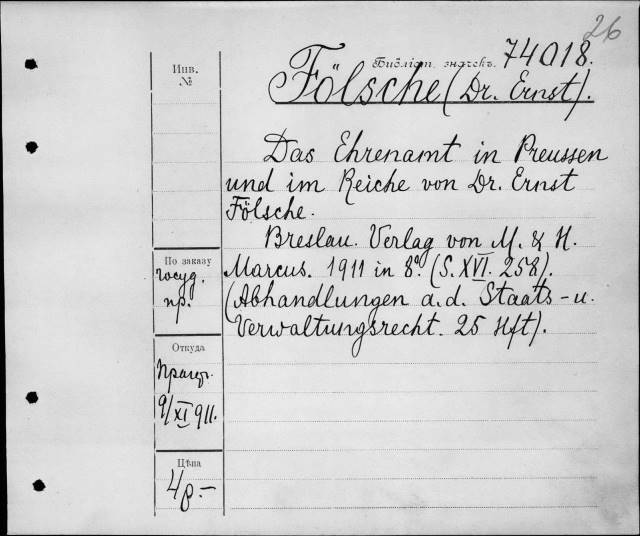 26
Библіот. значекъ. 74018.
Инв. №
Fölsche (Dr. Ernst).
Das Ehrenamt in Preussen
und im Reiche von Dr. Ernst
Fölsche.
Breslau. Verlag von M. & H.
Marcus. 1911 in 8º. (S. XVI. 258).
(Abhandlungen a.d. Staats- u.
Verwaltungsrecht. 25 Hft).
По заказу
госуд.
пр.
Откуда
9/XI 911.
Цѣна
4р.-